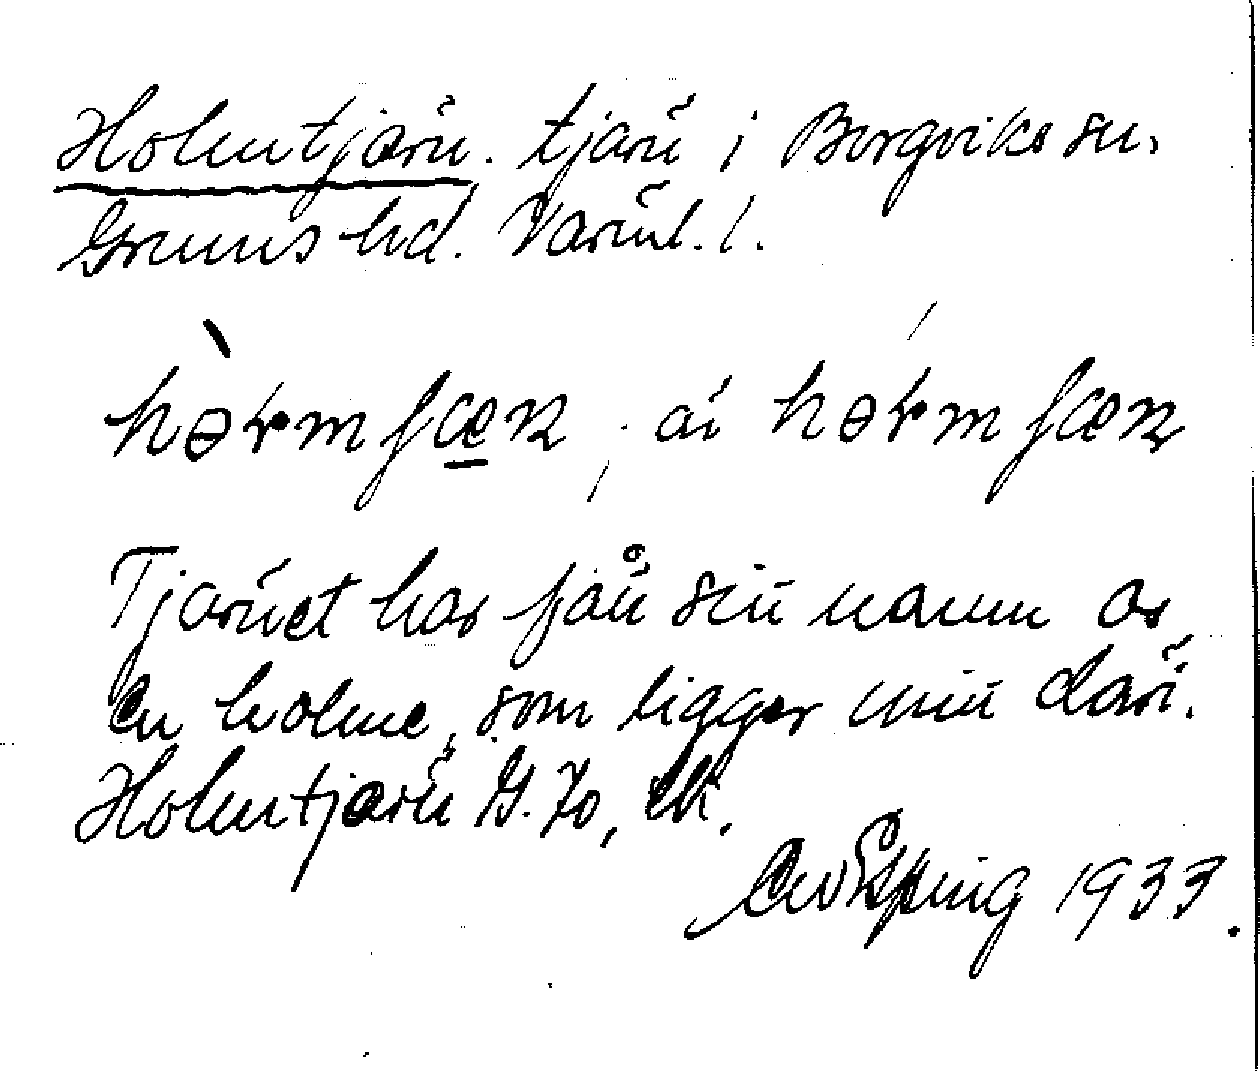 Holmtjärn. tjärn i Borgviks sn.
Grums hd. Värml. l.
hɵɽmʃæɳ, äi hɵɽmʃæɳ
Tjärnet har fått sitt namn av
en holme, som ligger mitt däri.
Holmtjärn G. Jo, ek.
1933.